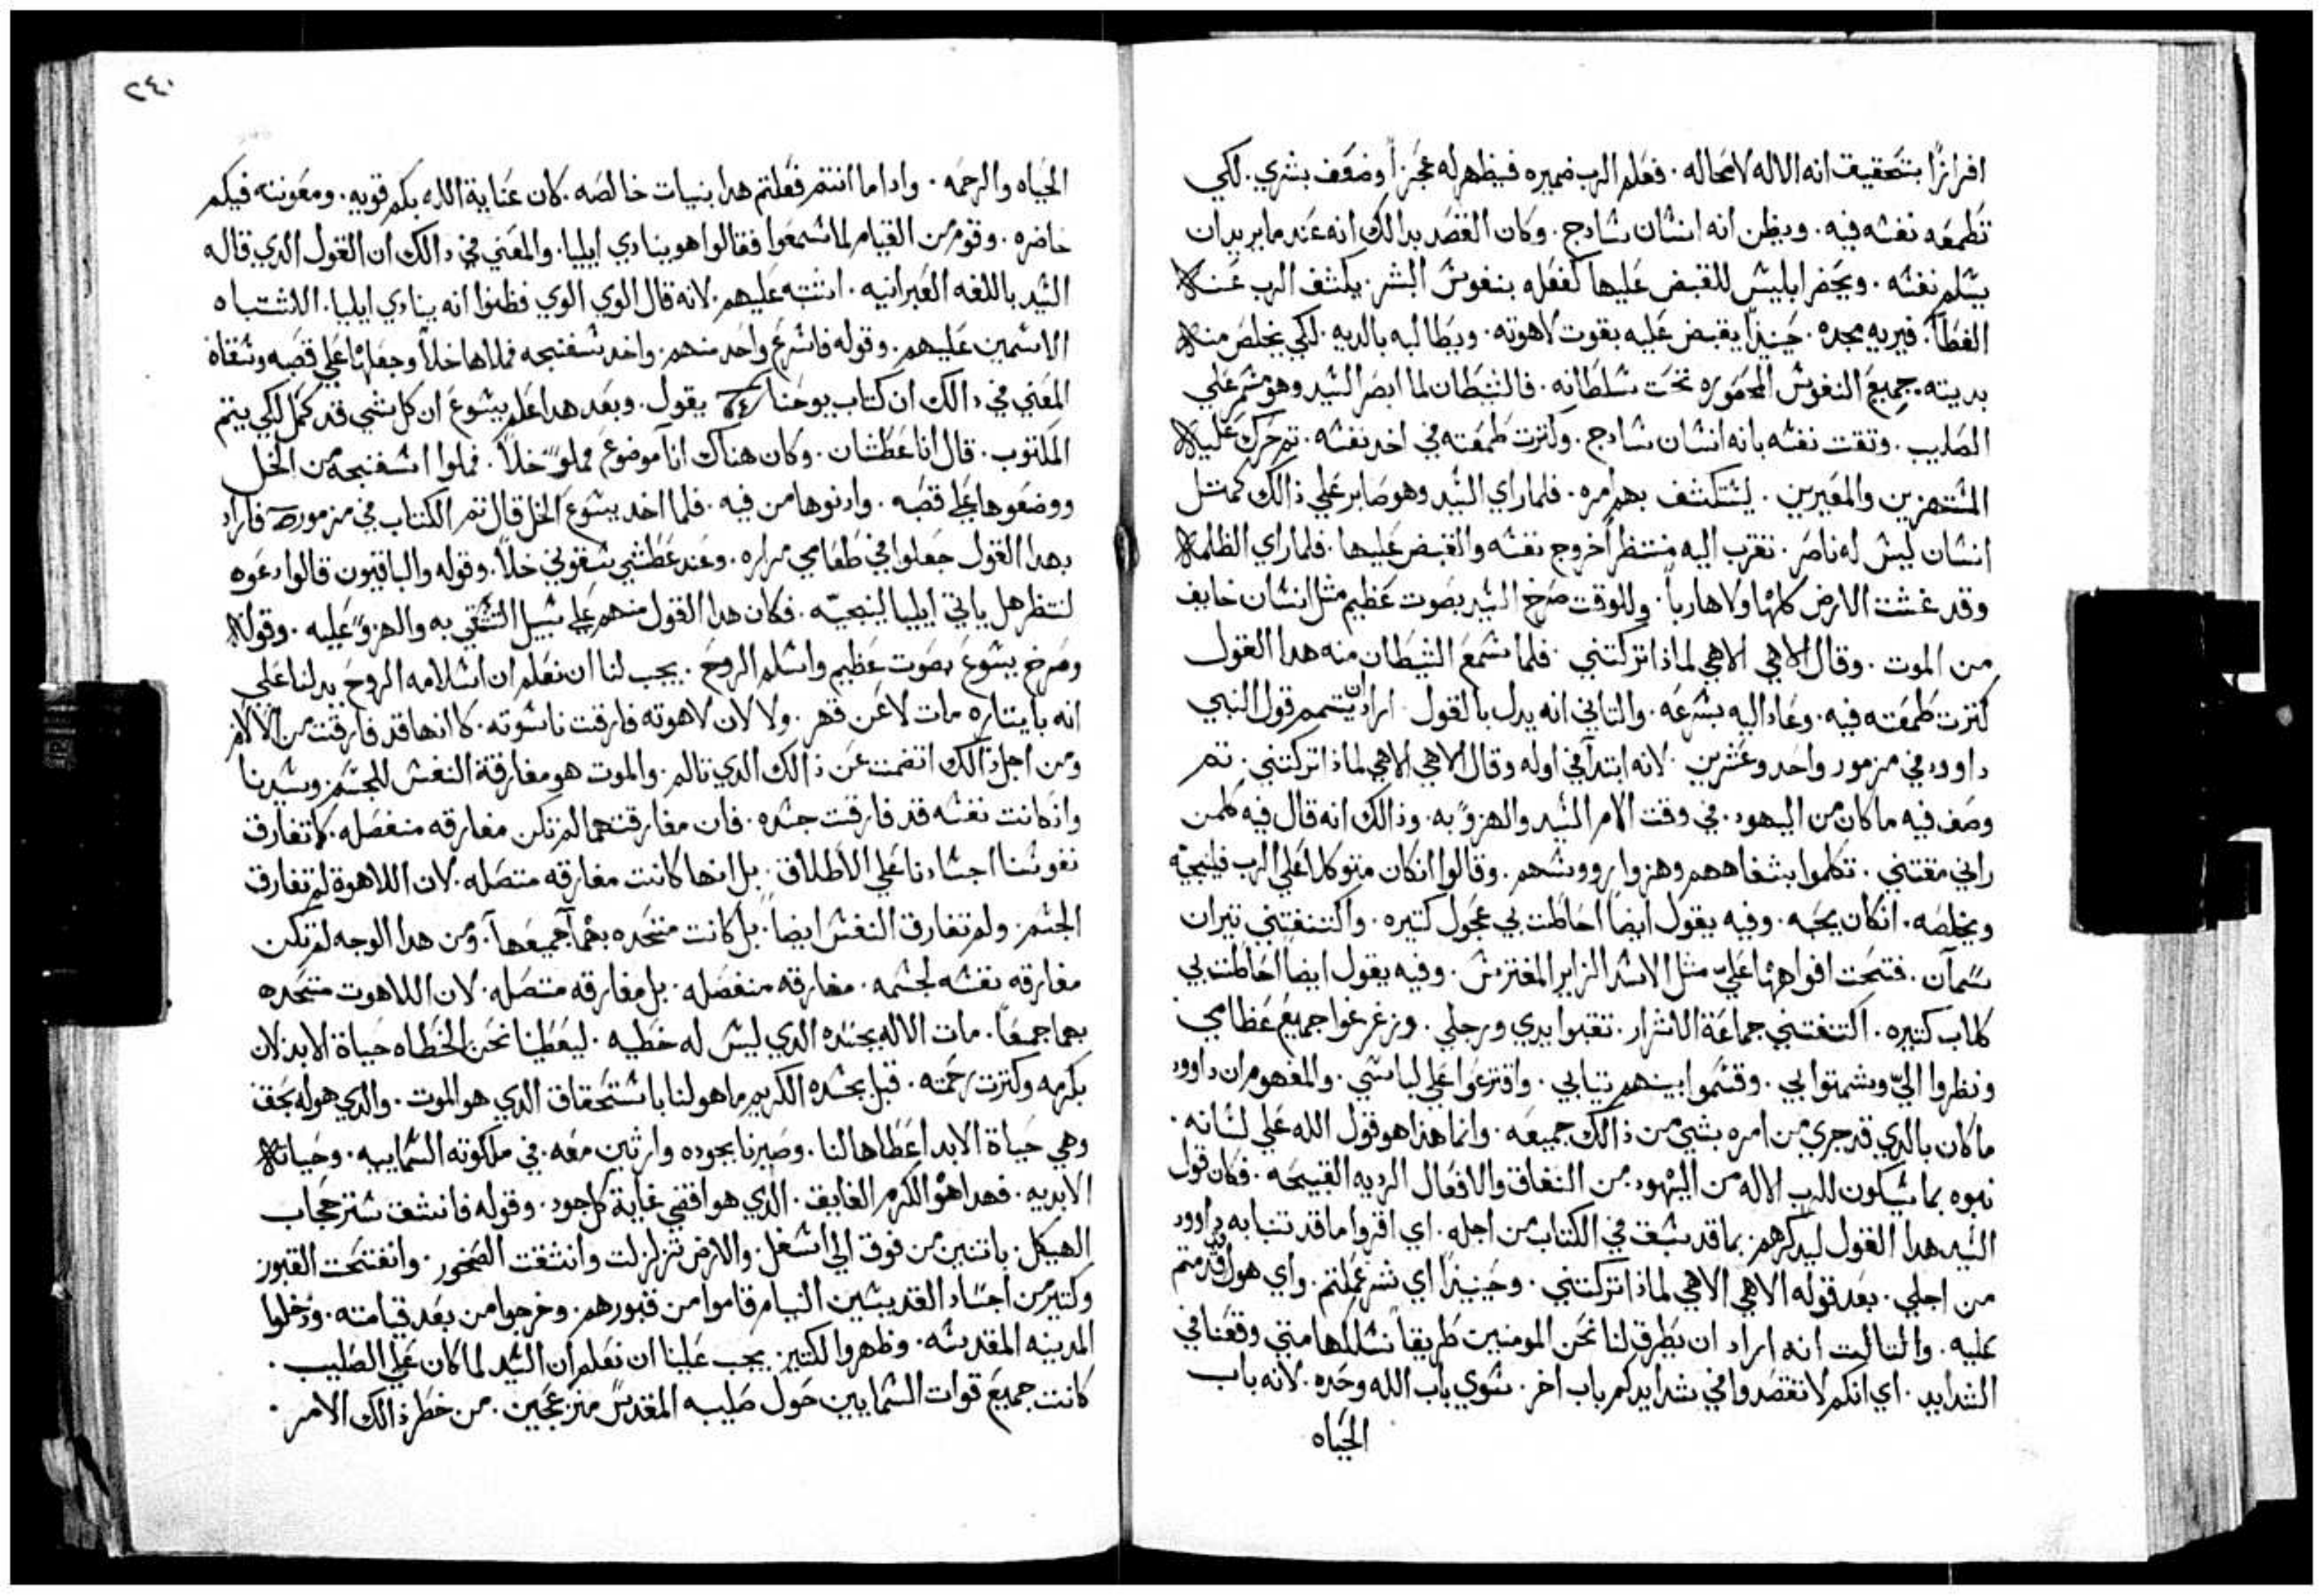 افرازًا بتحقيق انه الاله لا محاله. فعلم الرب ضميره فيظهر له عجزاً وضعف بشري. لكي
تطمعه نفسه فيه. ويظن انه انسان سادج. وكان القصد بدالك انه عندما يريد ان
يسلم نفسه. ويحضر ابليس للقبض عليها كفعله بنفوس البشر. يكشف الرب عنه
الغطا. فيريه مجده. حينيذاً يقبض عليه بقوت لاهوته. ويطالبه بالديه. لكي يخلص منه
بديته. جميع النفوس المحصوره تحت سلطانه. فالشيطان لما ابصر السيد وهو مسمر علي
الصليب. وثقت نفسه بانه انسان سادج. وكترت طمعته في اخد نفسه. تم حرك عليه
المستهزيين والمعيرين. ليستكشف بهم امره. فلما راي السيد وهو صابر علي ذالك كمتل
انسان ليس له ناصر. تقرب اليه منتظراً خروج نفسه والقبض عليها. فلما راي الظلمه
وقد غشت الارض كلها ولا هارباً. وللوقت صرخ السيد بصوت عظيم مثل انسان خايف
من الموت. وقال الاهي الاهي لماذا تركتني. فلما سمع الشيطان منه هدا القول
كترت طمعته فيه. وعاد اليه بسرعه. والتاني انه يدل بالقول اراد ان يتمم قول النبي
داوود في مزمور واحد وعشرين. لانه ابتدآ في اوله وقال الاهي الاهي لماذا تركتني. تم
وصف فيه ما كان من اليهود. في وقت الام السيد والهزوً به. وذالك انه قال فيه كلمن
راني مقتني. تكلموا بشفاههم وهزوا رووسهم. وقالوا انكان متوكلاً علي الرب فلينجيه
ويخلصه. انكان يحبه. وفيه يقول ايضاً احاطت بي عجول كتيره. واكتنفتني تيران
سمآن. فتحت افواهها عليّ مثل الاسد الزاير المفترس. وفيه يقول ايضاً احاطت بي
كلاب كتيره. اكتنفتني جماعة الاشرار. تقبوا يدي ورجلي. وزعزعوا جميع عظامي
ونظروا اليّ وشمتوا بي. وقسموا بينهم تيابي. واقترعوا علي لباسي. والمفهوم ان داوود
ما كان بالدي قد جري من امره بشي من ذالك جميعه. وانما هذا هو قول الله علي لسانه.
نبوه بما سيكون للرب الاله من اليهود من النفاق والافعال الرديه القبيحه. فكان قول
السيد هدا القول ليدكرهم بما قد سبق في الكتاب من اجله. اي اقروا ما قد تنبا به داوود
من اجلي. بعد قوله الاهي الاهي لماذا تركتني. وحينيذاً اي شر عملتم. واي هول قدمتم
عليه. والتالت انه اراد ان يطرق لنا نحن المومنين طريقاً نسلكها متي وقعنا في
الشدايد. اي انكم لا تقصدوا في شدايدكم باب اخر. سوي باب الله وحده. لانه باب
الحياه
٢٤٠
الحياه والرحمه. واداما انتم فعلتم هدا بنيات خالصه. كان عناية الله بكم قويه. ومعونته فيكم
حاضره. وقوم من القيام لما سمعوا فقالوا هو ينادي ايليا. والمعني في دالك ان القول الدي قاله
السيد باللغه العبرانيه. اشتبه عليهم. لانه قال الوي الوي فظنوا انه ينادي ايليا. الاشتباه
الاسمين عليهم. وقوله فاسرع واحد منهم. واخد سفنجه فملاها خلاً وجعلها علي قصبه وسقاه
المعني في دالك ان كتاب يوحنا يقول. وبعد هدا علم يسوع ان كل شي قد كمل لكي يتم
المكتوب. قال انا عطشان. وكان هناك اناً موضوع مملوً خلاً. فملوا اسفنجه من الخل
ووضعوها علي قصبه. وادنوها من فيه. فلما اخد يسوع الخل قال تم الكتاب في مزمور فاراد
بهدا القول جعلوا في طعامي مراره. وعند عطشي سقوني خلاً. وقوله والباقيون قالوا دعوه
لننظر هل ياتي ايليا لينجيه. فكان هدا القول منهم علي سبيل التشفي به والهزوً عليه. وقوله
وصرخ يسوع بصوت عظيم واسلم الروح. يجب لنا ان نعلم ان اسلامه الروح يدلنا علي
انه بايتاره مات لا عن قهر. ولا لان لاهوته فارقت ناسوته. كانها قد فارقت من الالام
ومن اجل ذالك انفصمت عن ذالك الدي تالم. والموت هو مفارقة النفس للجسم. وسيدنا
واذ كانت نفسه قد فارقت جسده. فان مفارقتهما لم تكن مفارقه منفصله. كما تفارق
نفوسنا اجسادنا علي الاطلاق. بل انها كانت مفارقه متصله. لان اللاهوة لم تفارق
الجسم. ولم تفارق النفس ايضاً. بل كانت متحده بهما جميعهاً. ومن هدا الوجه لم تكن
مفارقه نفسه لجسمه. مفارقه منفصله. بل مفارقه متصله. لان اللاهوت متحده
بهما جميعاً. مات الاله بجسده الدي ليس له خطيه. ليعطينا نحن الخطاه حياة الابد لان
بكرمه وكترت رحمته. قبل بجسده الكريم ما هو لنا باستحقاق الدي هو الموت. والدي هو له بحق
وهي حياة الابد اعطاها لنا. وصيرنا بجوده وارثين معه. في ملكوته السماييه. وحياته
الابديه. فهدا هو الكرم الفايق. الدي هو اقصي غاية كل جود. وقوله فانشق ستر حجاب
الهيكل. باتنين من فوق الي اسفل. والارض تزلزلت وانشقت الصخور. وانفتحت القبور
وكتير من اجساد القديسين النيام قاموا من قبورهم. وخرجوا من بعد قيامته. ودخلوا
المدينه المقدسه. وظهروا لكتير. يجب علينا ان نعلم ان السيد لما كان علي الصليب.
كانت جميع قوات السماييين حول صليبه المقدس منزعجين. من خطر ذالك الامر.